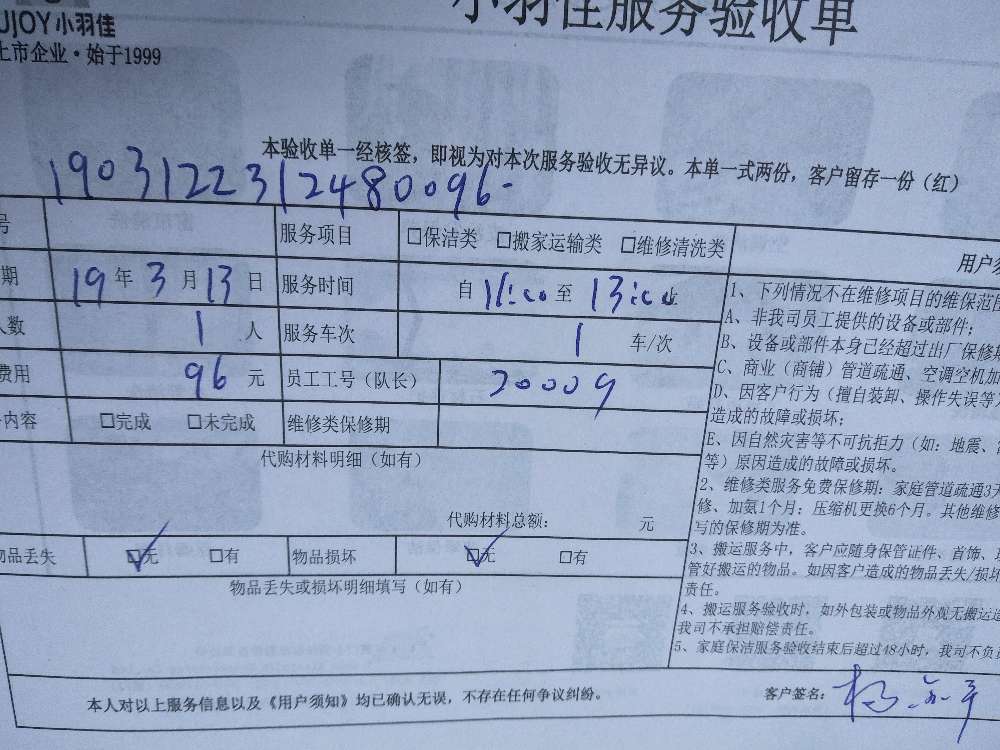 小羽佳服务验收单
UJOY小羽佳
上市企业·始于1999
本验收单一经核签，即视为对本次服务验收无异议。本单一式两份，客户留存一份（红）
1903122312480096
号 服务项目 □保洁类 □搬家运输类 □维修清洗类
期 19年3月13日 服务时间 自11:00至13:00止
人数 1人 服务车次 1车/次
费用 96元 员工工号（队长） 20009
内容 □完成 □未完成 维修类保修期
代购材料明细（如有）
代购材料总额： 元
物品丢失 ☑无 □有 物品损坏 ☑无 □有
物品丢失或损坏明细填写（如有）
用户须
1、下列情况不在维修项目的维保范围
A、非我司员工提供的设备或部件；
B、设备或部件本身已经超过出厂保修期
C、商业（商铺）管道疏通、空调空机加
D、因客户行为（擅自装卸、操作失误等）
造成的故障或损坏；
E、因自然灾害等不可抗拒力（如：地震、
等）原因造成的故障或损坏。
2、维修类服务免费保修期：家庭管道疏通3天
修、加氨1个月；压缩机更换6个月。其他维修
写的保修期为准。
3、搬运服务中，客户应随身保管证件、首饰、
管好搬运的物品。如因客户造成的物品丢失/损坏
责任。
4、搬运服务验收时，如外包装或物品外观无搬运造
我司不承担赔偿责任。
5、家庭保洁服务验收结束后超过48小时，我司不负责
本人对以上服务信息以及《用户须知》均已确认无误，不存在任何争议纠纷。
客户签名：杨